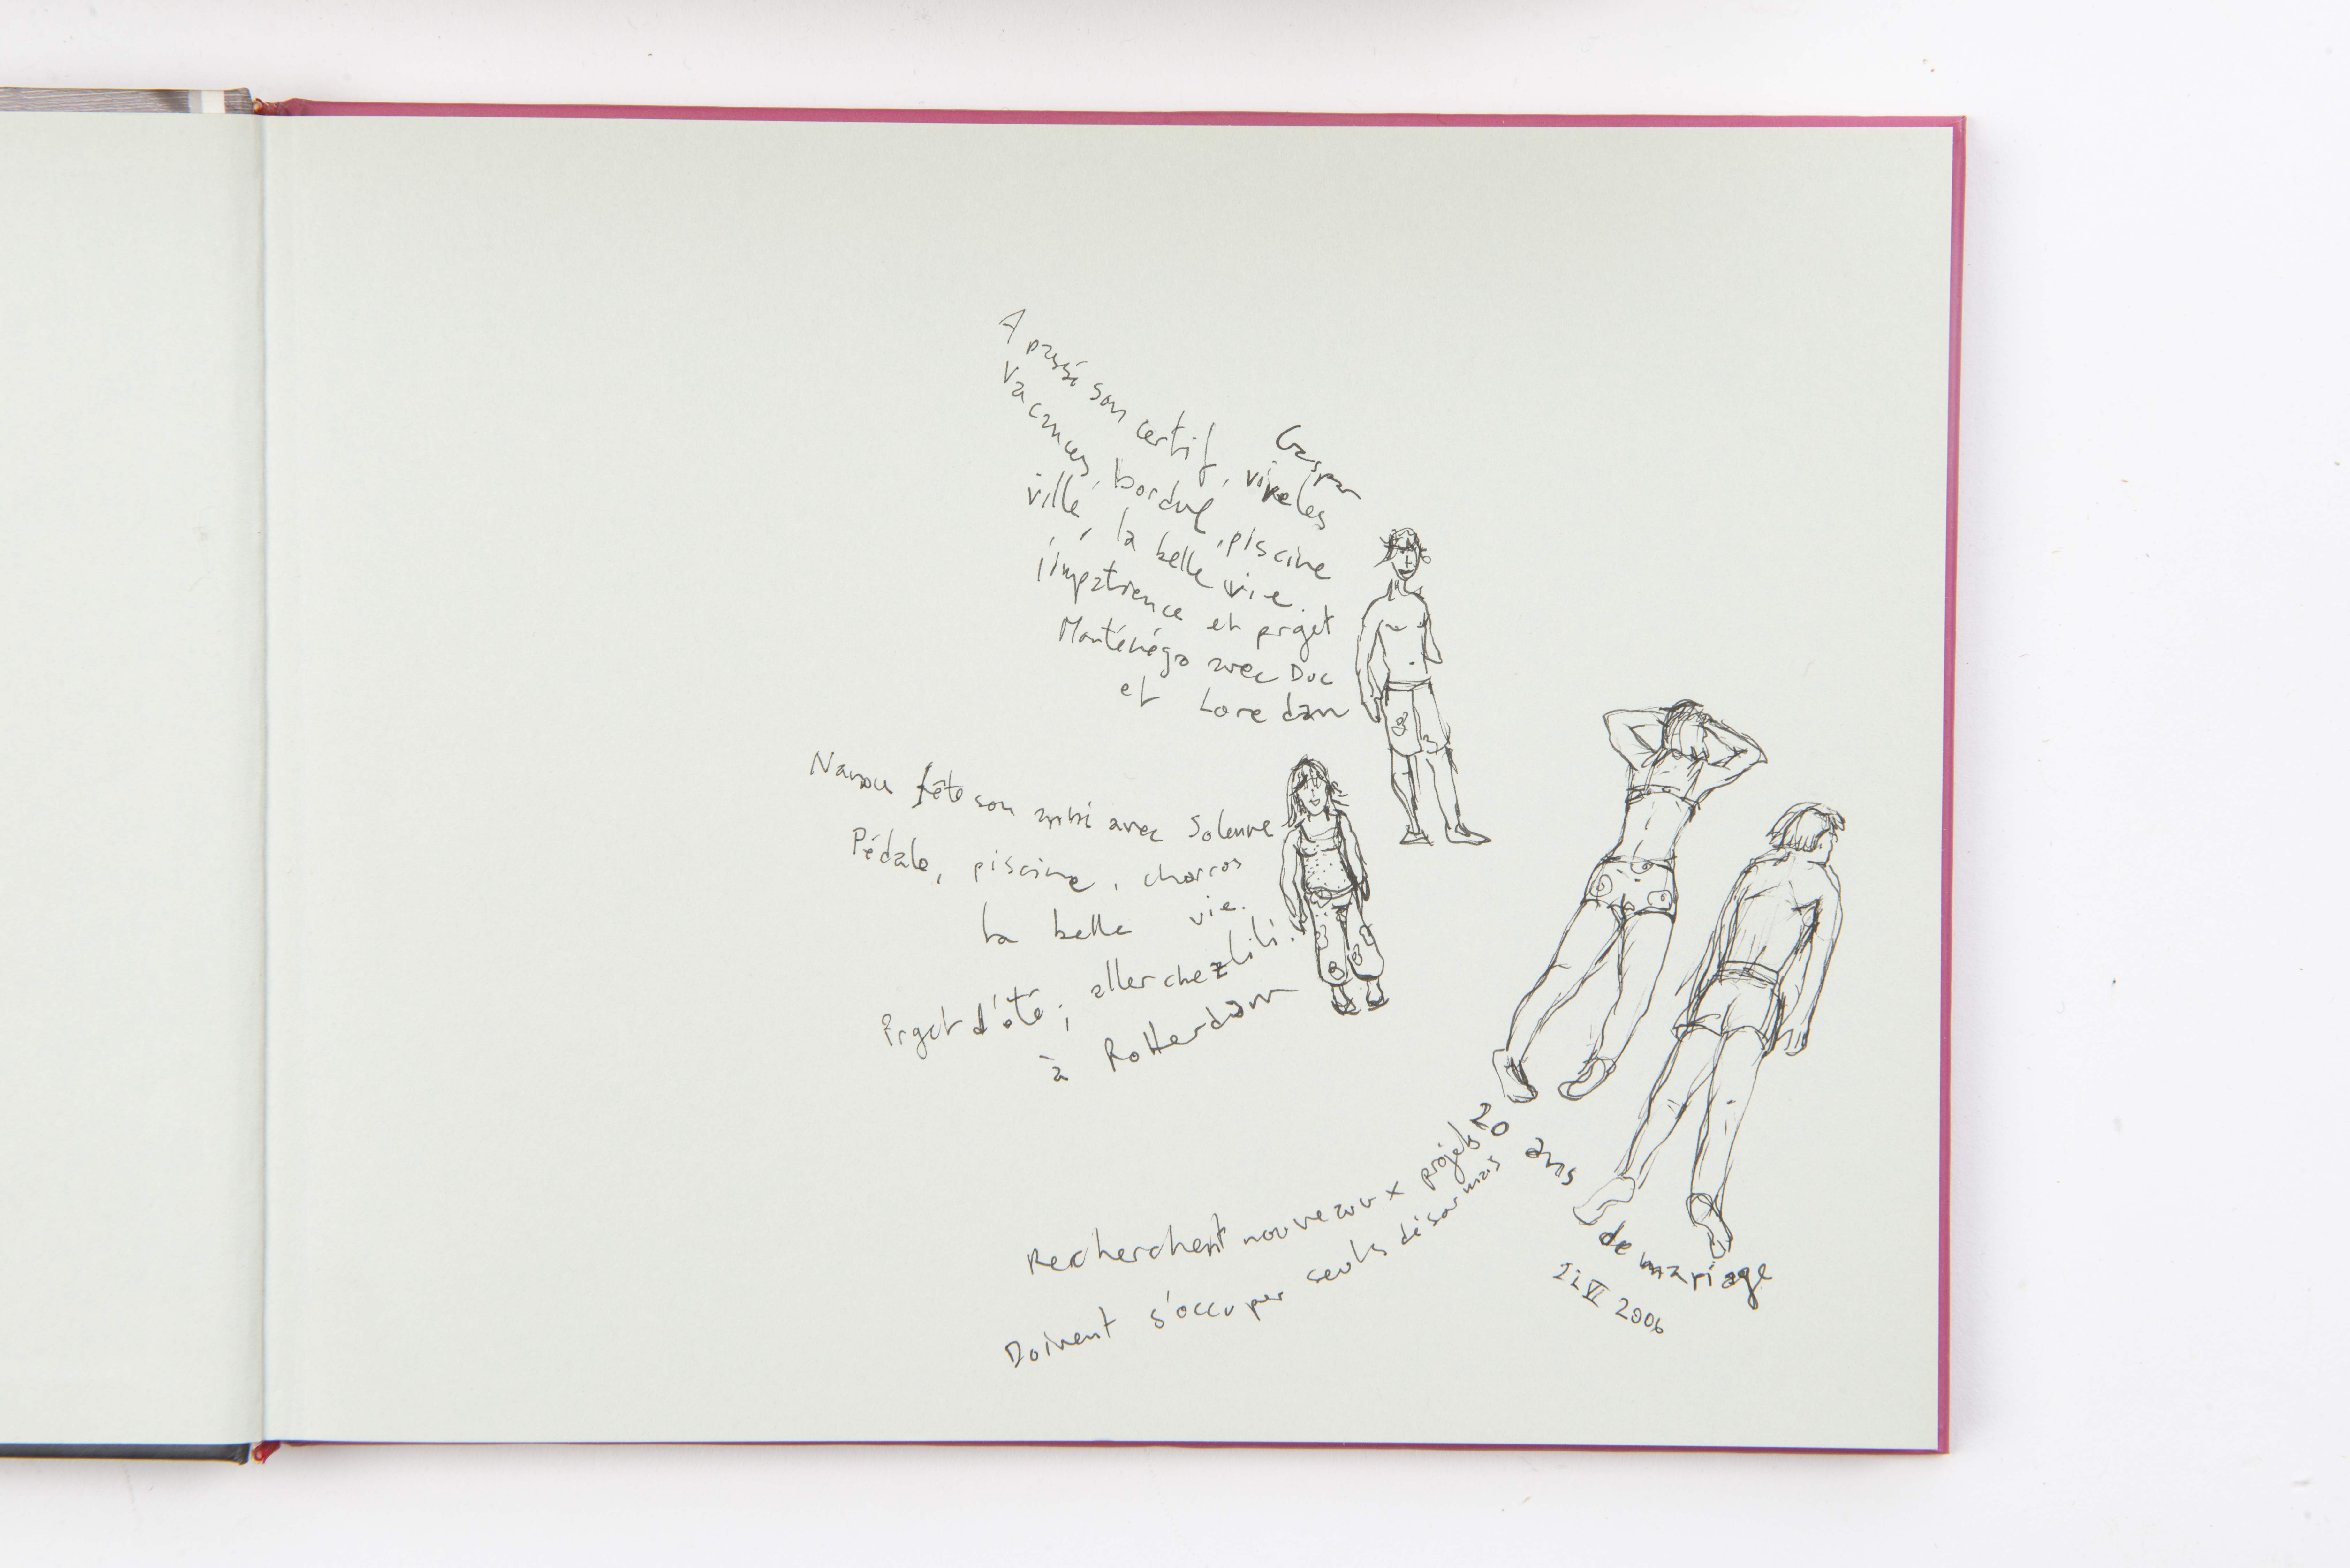 Gaspar
A passé son certif, vive les
vacances, bordul, piscine
ville, la belle vie.
impatience et projet
Monténégo avec Duc
et Loredan
Nanou fête son avec Solenne
Pédalo, piscine, charros
La belle vie.
Projet d'été ; aller chez Lili.
à Rotterdam
20 ans
de mariage
21 VI 2006
Recherchent nouveaux projets
Doivent s'occuper seuls désormais